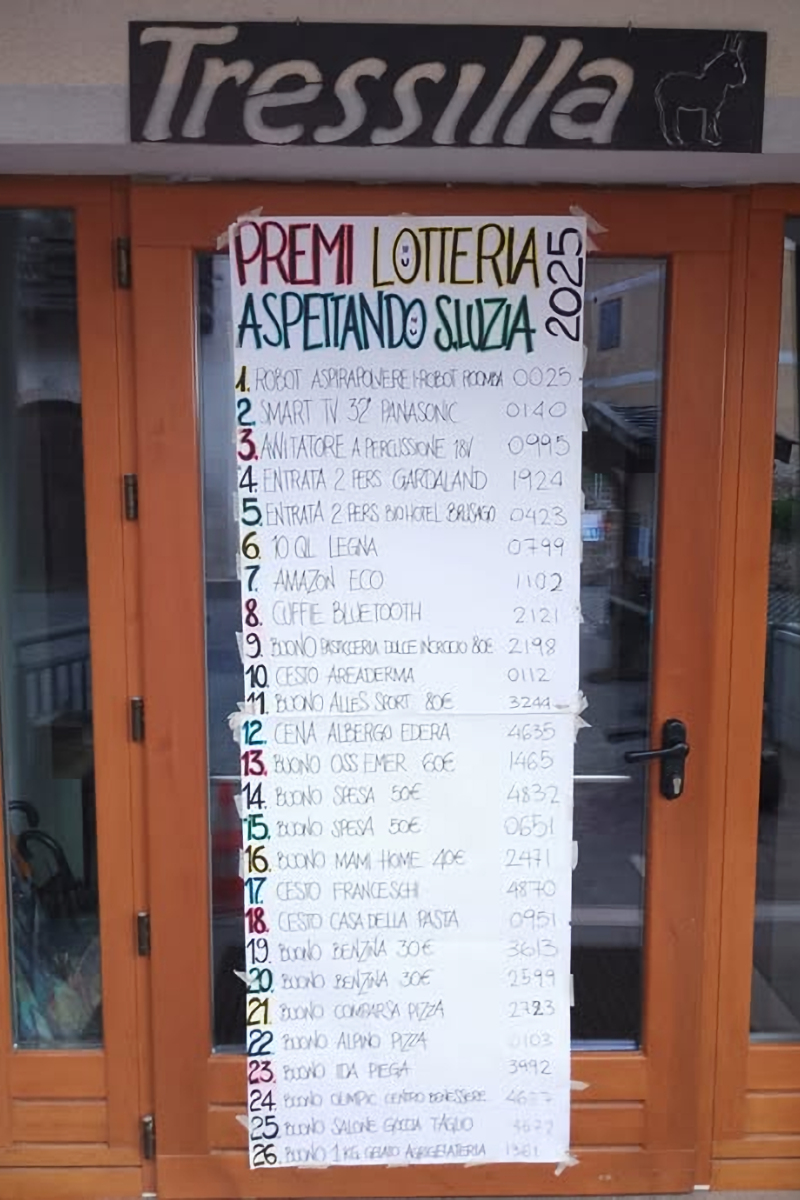 Tressilla
PREMI LOTTERIA 2025
ASPETTANDO S.LUZIA
1. ROBOT ASPIRAPOLVERE I-ROBOT ROOMBA 0025
2. SMART TV 32" PANASONIC 0140
3. AVVITATORE A PERCUSSIONE 18V 0995
4. ENTRATA 2 PERS GARDALAND 1924
5. ENTRATA 2 PERS BIOHOTEL BRUSAGO 0423
6. 10 QL LEGNA 0799
7. AMAZON ECO 1102
8. CUFFIE BLUETOOTH 2121
9. BUONO PASTICCERIA DOLCE 80€ 2198
10. CESTO AREADERMA 0112
11. BUONO ALLES SPORT 80€ 3244
12. CENA ALBERGO EDERA 4635
13. BUONO OSS EMER 60€ 1465
14. BUONO SPESA 50€ 4832
15. BUONO SPESA 50€ 0651
16. BUONO MAMI HOME 40€ 2471
17. CESTO FRANCESCHI 4870
18. CESTO CASA DELLA PASTA 0951
19. BUONO BENZINA 30€ 3613
20. BUONO BENZINA 30€ 2599
21. BUONO COMPARSA PIZZA 2723
22. BUONO ALPINO PIZZA 0103
23. BUONO IDA PIEGA 3992
24. BUONO OLIMPIC CENTRO BENESSERE
25. BUONO SALONE TAGLIO
26. BUONO 1KG GELATO AGRIGELATERIA